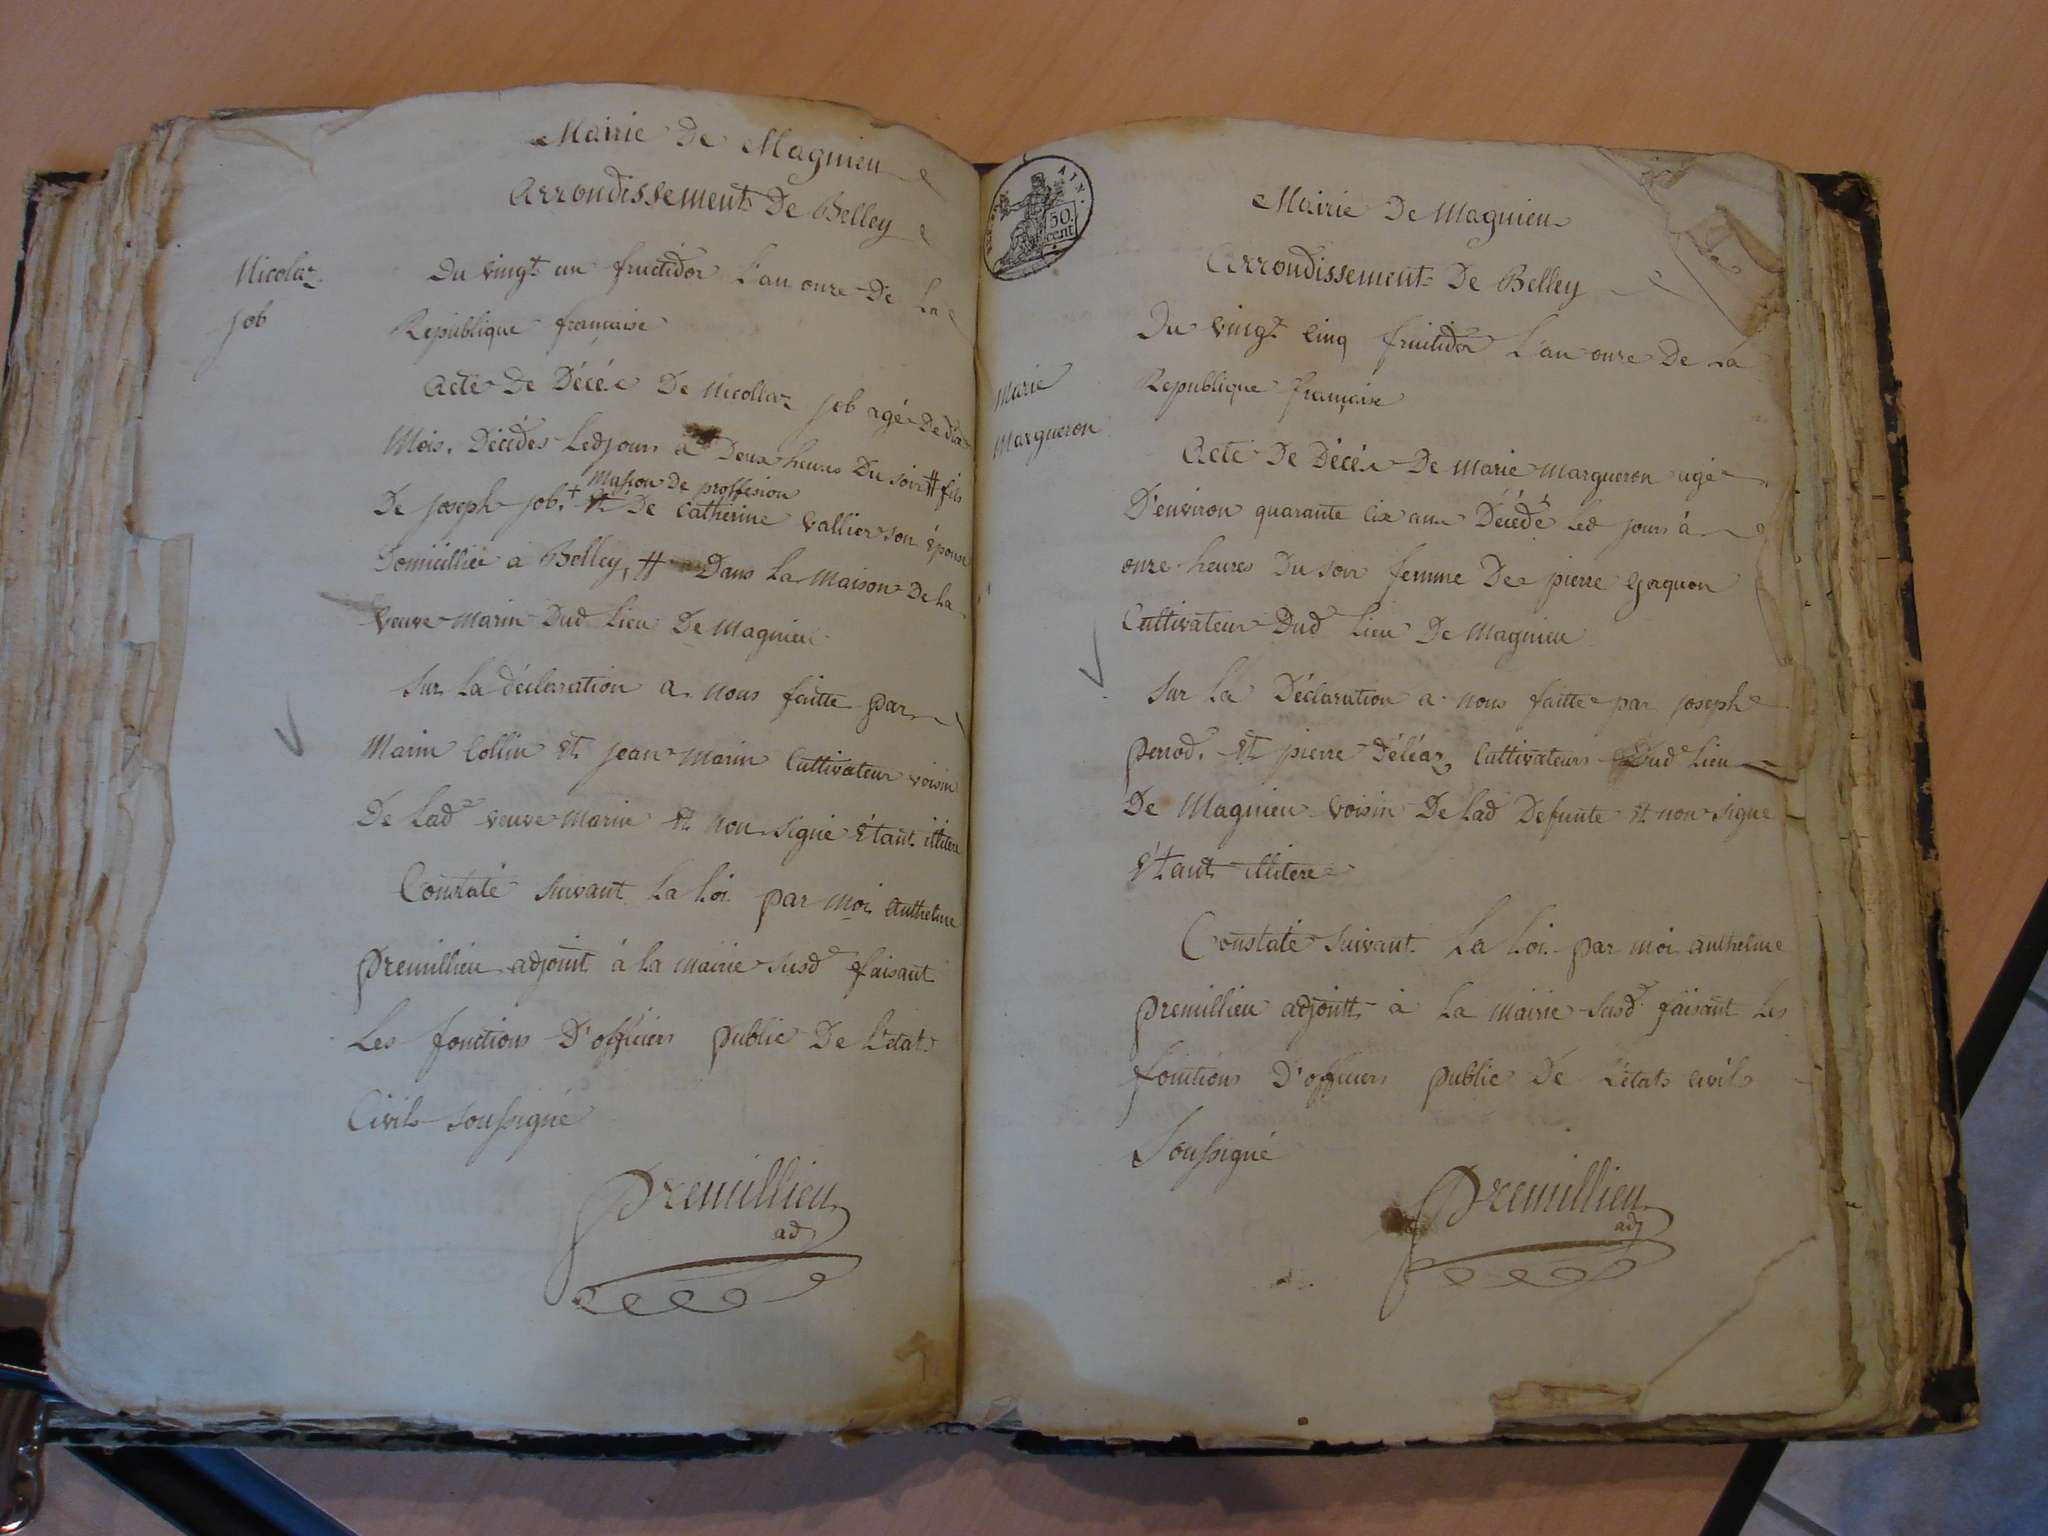 Mairie De Magnieu
Arrondissement De Belley
Nicolaz
Job
Du vingt un fructidor L'an onze De La
Republique française
Acte De Décée De Nicollaz Job agé De dix
Mois. Décédes Ledjours a Deux heures Du soir # fils
Masson De proffesion
De Joseph Job. + et De Catherine Vallier son épouse
Domicilliée a Belley, # Dans La Maison De La
Veuve Marin Dud Lieu De Magnieu
Sur La déclaration a nous faitte par
Marin Collin et Jean Marin Cultivateur voisin
De Lad.e veuve Marin et non signé étant illitere
Constaté Suivant La Loi par moi Anthelme
Premillieu adjoint á la mairie Susd.e faisant
Les fonctions D'officiers public De L'etat
Civil Soussigné
Premillieu
adj
50
cent
Mairie De Magnieu
Arrondissement De Belley
Marie
Margueron
Du vingt cinq fructidor L'an onze De La
Republique française
Acte De Décée De Marie Margueron agé
D'environ quarante six ans Décédé Led jours á
onze heures Du soir femme De pierre
Cultivateur Dud Lieu De Magnieu
Sur La Déclaration a nous faitte par Joseph
Perrod. et pierre Déléaz Cultivateurs Dud Lieu
De Magnieu voisin De Lad Defunte et non signé
étant illitere
Constaté Suivant La Loi par moi anthelme
premillieu adjoint á La Mairie Susd.e faisant Les
fonctions D'officiers public De L'état civil
Soussigné
Premillieu
adj